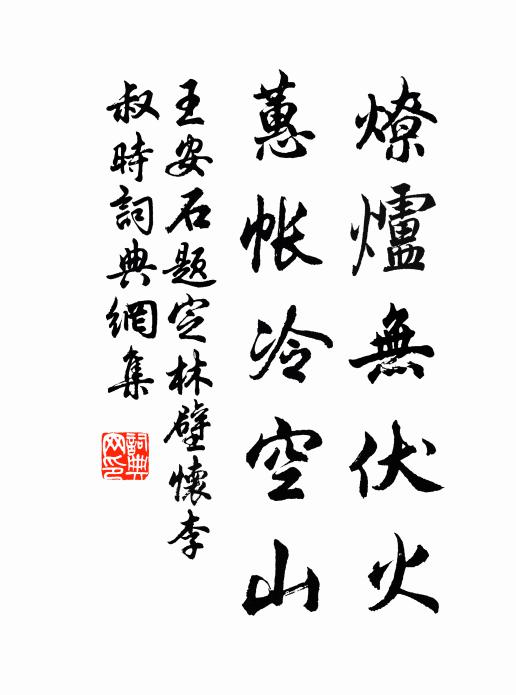 燎爐無伏火
蕙帳冷空山
王安石題定林壁懷李
叔時詞典網集
詞典
网印